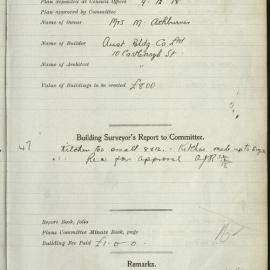 Plan deposited at Council Office 9. 12. 18
Plan approved by Committee
Name of Owner Mrs M. Ashburner
Name of Builder Aust Bldg. Co Ltd
10 Castlereagh St
Name of Architect "
Value of Buildings to be erected £800
Building Surveyor's Report to Committee.
Kitchen too small 8x12. Kitchen made up to
Rec for approval
Report Book, folio
Plans Committee Minute Book, page
Building Fee Paid £1-0-0
Remarks.